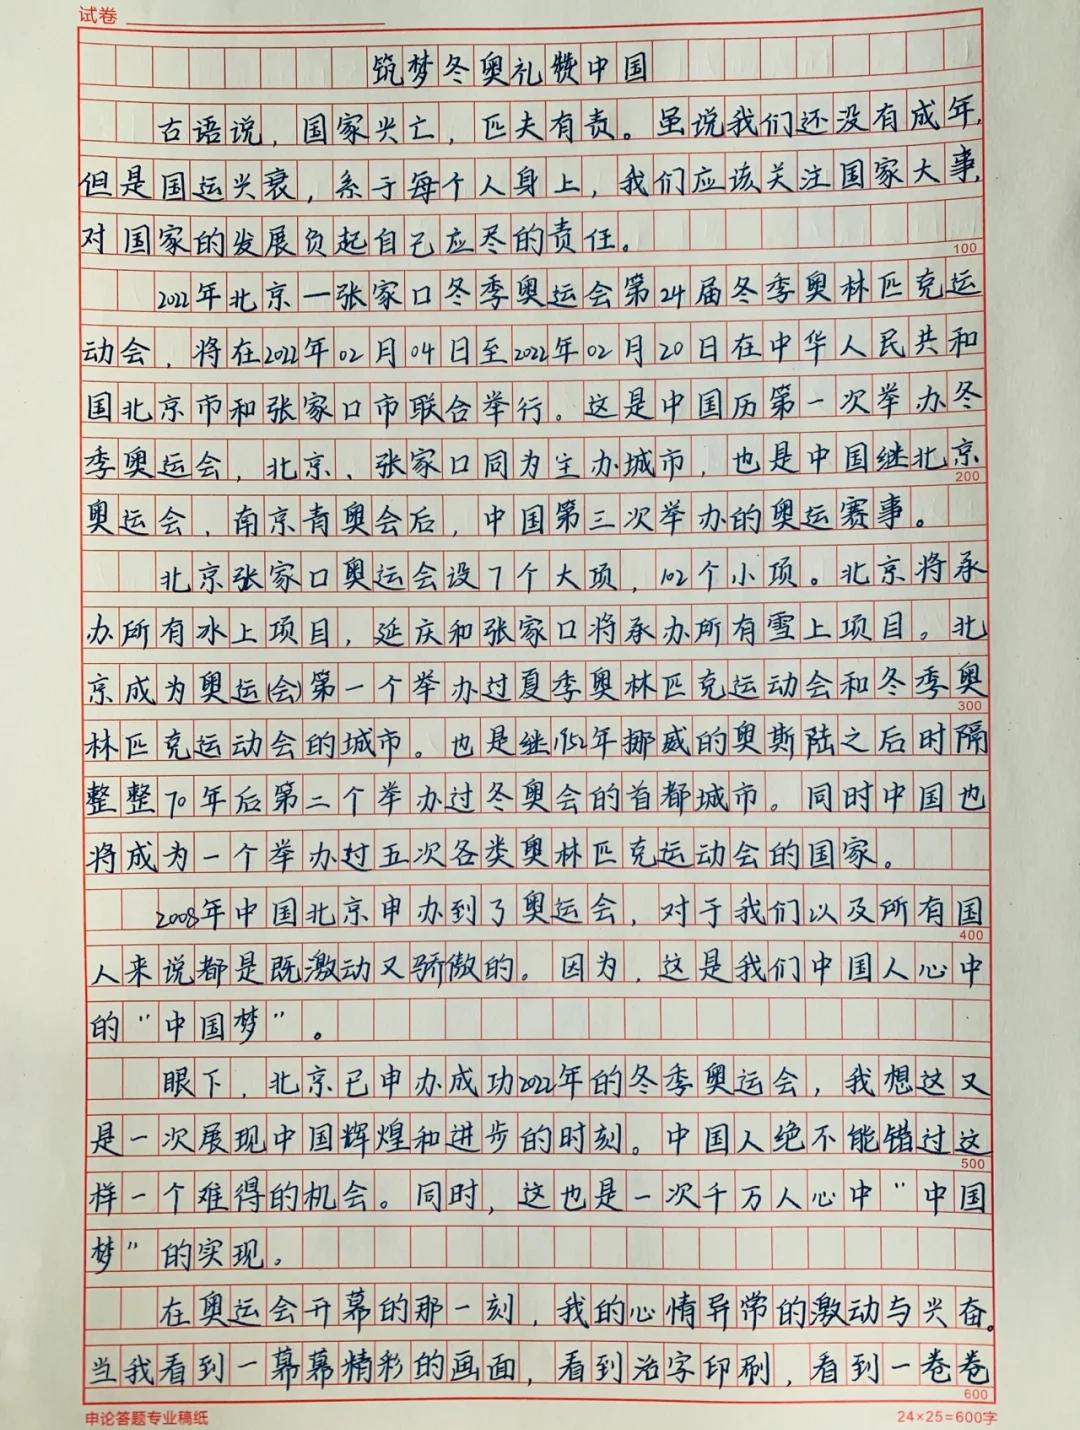 试卷
筑梦冬奥礼赞中国
古语说，国家兴亡，匹夫有责。虽说我们还没有成年，
但是国运兴衰，系于每个人身上，我们应该关注国家大事，
对国家的发展负起自己应尽的责任。
100
2022年北京一张家口冬季奥运会第24届冬季奥林匹克运
动会，将在2022年02月04日至2022年02月20日在中华人民共和
国北京市和张家口市联合举行。这是中国历第一次举办冬
季奥运会，北京、张家口同为主办城市，也是中国继北京
200
奥运会、南京青奥会后，中国第三次举办的奥运赛事。
北京张家口奥运会设7个大项，102个小项。北京将承
办所有冰上项目，延庆和张家口将承办所有雪上项目。北
京成为奥运(会)第一个举办过夏季奥林匹克运动会和冬季奥
300
林匹克运动会的城市。也是继1952年挪威的奥斯陆之后时隔
整整70年后第二个举办过冬奥会的首都城市。同时中国也
将成为一个举办过五次各类奥林匹克运动会的国家。
2008年中国北京申办到了奥运会，对于我们以及所有国
400
人来说都是既激动又骄傲的。因为，这是我们中国人心中
的“中国梦”。
眼下，北京已申办成功2022年的冬季奥运会，我想这又
是一次展现中国辉煌和进步的时刻。中国人绝不能错过这
500
样一个难得的机会。同时，这也是一次千万人心中“中国
梦”的实现。
在奥运会开幕的那一刻，我的心情异常的激动与兴奋。
当我看到一幕幕精彩的画面，看到活字印刷，看到一卷卷
600
申论答题专业稿纸
24×25=600字